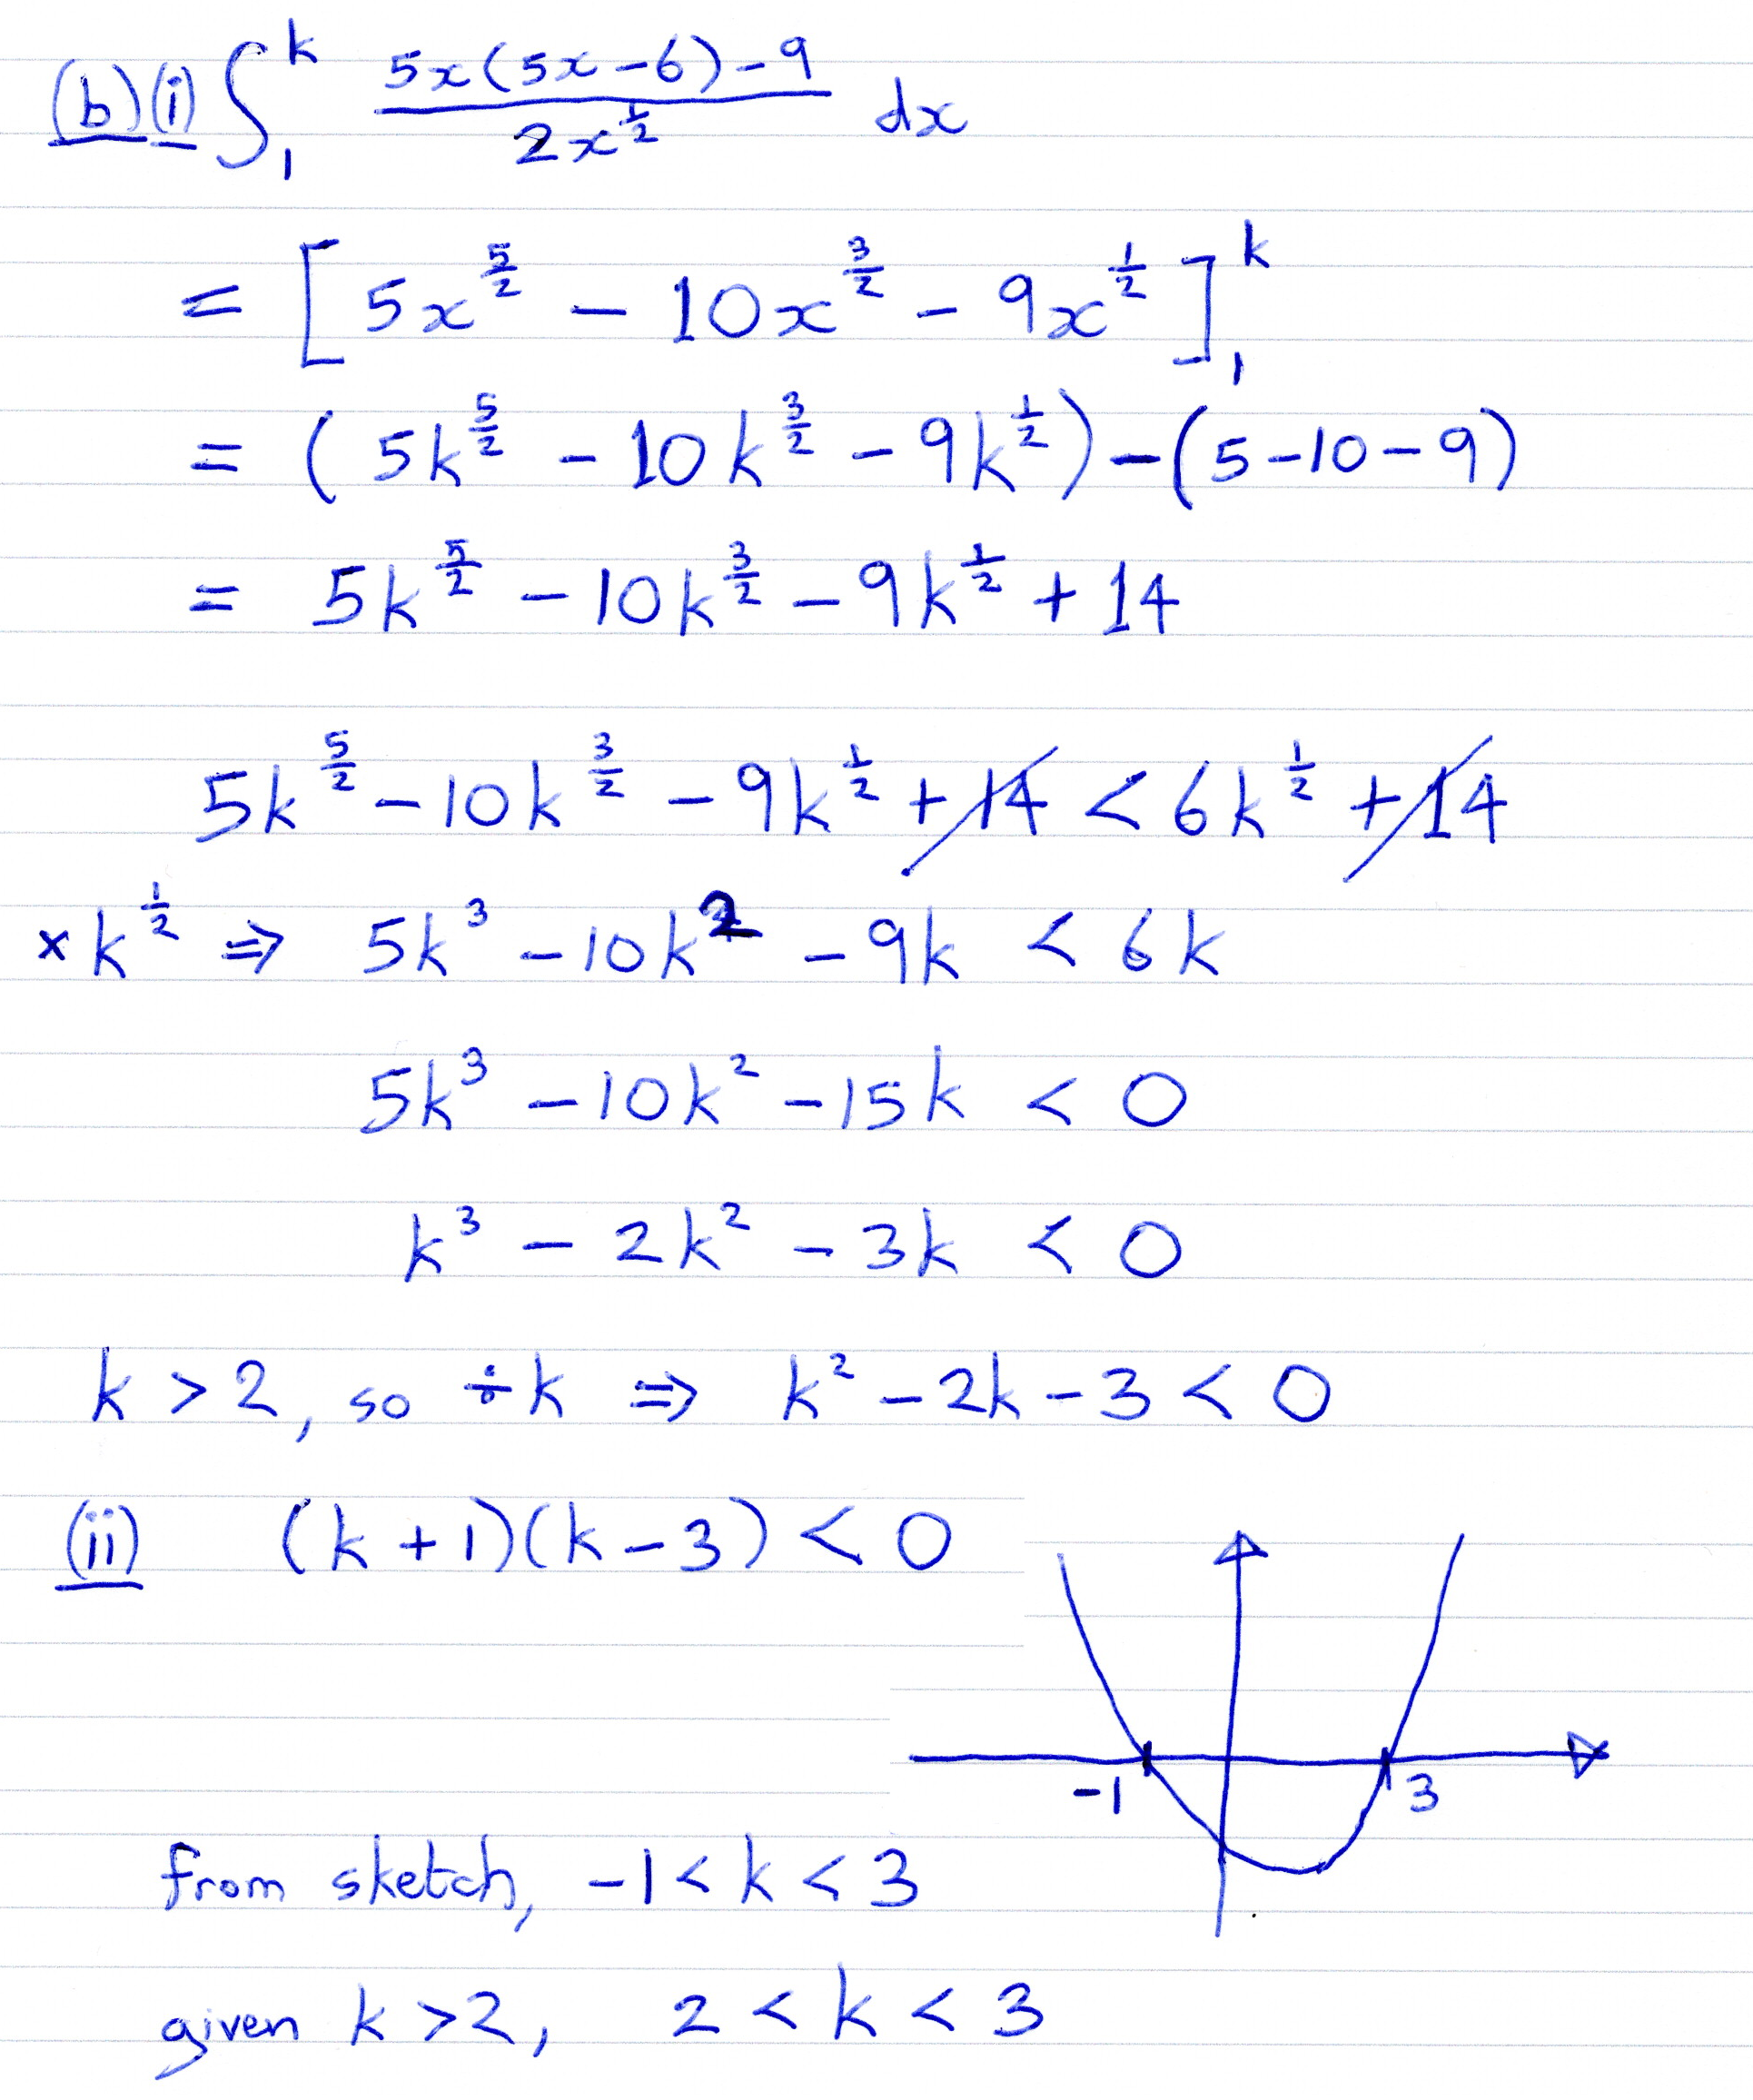 (b)(i) ∫₁ᵏ (5x(5x-6)-9)/(2x^(1/2)) dx
= [5x^(5/2) - 10x^(3/2) - 9x^(1/2)]₁ᵏ
= (5k^(5/2) - 10k^(3/2) - 9k^(1/2)) - (5-10-9)
= 5k^(5/2) - 10k^(3/2) - 9k^(1/2) + 14
5k^(5/2) - 10k^(3/2) - 9k^(1/2) + 14 < 6k^(1/2) + 14
×k^(1/2) ⇒ 5k³ - 10k² - 9k < 6k
5k³ - 10k² - 15k < 0
k³ - 2k² - 3k < 0
k > 2, so ÷k ⇒ k² - 2k - 3 < 0
(ii) (k+1)(k-3) < 0
-1 3
from sketch, -1 < k < 3
given k > 2, 2 < k < 3